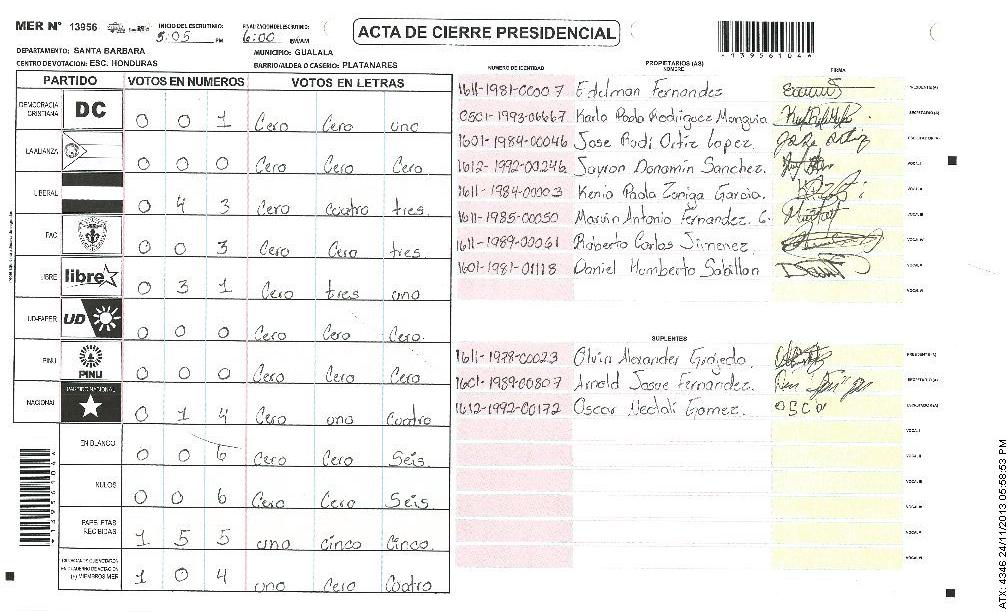 MER N° 13956 INICIO DEL ESCRUTINIO: 5:05 PM FINALIZACION DEL ESCRUTINIO: 6:00
ACTA DE CIERRE PRESIDENCIAL
*13956104*
DEPARTAMENTO: SANTA BARBARA MUNICIPIO: GUALALA
CENTRO DE VOTACION: ESC. HONDURAS BARRIO/ALDEA O CASERIO: PLATANARES
PARTIDO VOTOS EN NUMEROS VOTOS EN LETRAS
DEMOCRACIA CRISTIANA DC 0 0 1 Cero Cero uno
LA ALIANZA 0 0 0 Cero Cero Cero
LIBERAL 0 4 3 Cero Cuatro tres.
PAC 0 0 3 Cero Cero tres.
LIBRE libre 0 3 1 Cero tres uno
UD-FAPER UD 0 0 0 Cero Cero Cero.
PINU PINU 0 0 0 Cero Cero Cero
NACIONAL PARTIDO NACIONAL 0 1 4 Cero uno Cuatro
EN BLANCO 0 0 6 Cero Cero Seis.
NULOS 0 0 6 Cero Cero Seis
PAPELETAS RECIBIDAS 1 5 5 uno Cinco Cinco.
CIUDADANOS QUE VOTARON EN CUADERNO DE VOTACION (+) MIEMBROS MER 1 0 4 uno Cero Cuatro
NUMERO DE IDENTIDAD PROPIETARIOS (AS) NOMBRE FIRMA
1611-1981-00007 Edelman Fernandez PRESIDENTE (A)
0501-1993-06667 Karla Paola Rodriguez Munguia SECRETARIO (A)
1601-1984-00046 Jose Rudi Ortiz Lopez. ESCRUTADOR (A)
1612-1992-00246 Jayron Donamin Sanchez. VOCAL I
1611-1984-00003 Kenia Paola Zuniga Garcia. VOCAL II
1611-1985-00050 Marvin Antonio Fernandez. G. VOCAL III
1611-1989-00061 Roberto Carlos Jimenez. VOCAL IV
1601-1981-01118 Daniel Humberto Sabillon VOCAL V
VOCAL VI
SUPLENTES
1611-1978-00023 Olvin Alexander Grajeda PRESIDENTE (A)
1601-1989-00807 Arnold Josue Fernandez. SECRETARIO (A)
1612-1992-00172 Oscar Neptali Gomez. OSCar ESCRUTADOR (A)
VOCAL I
VOCAL II
VOCAL III
VOCAL IV
VOCAL V
VOCAL VI
*13956104*
ATX: 4346 24/11/2013 05:58:53 PM